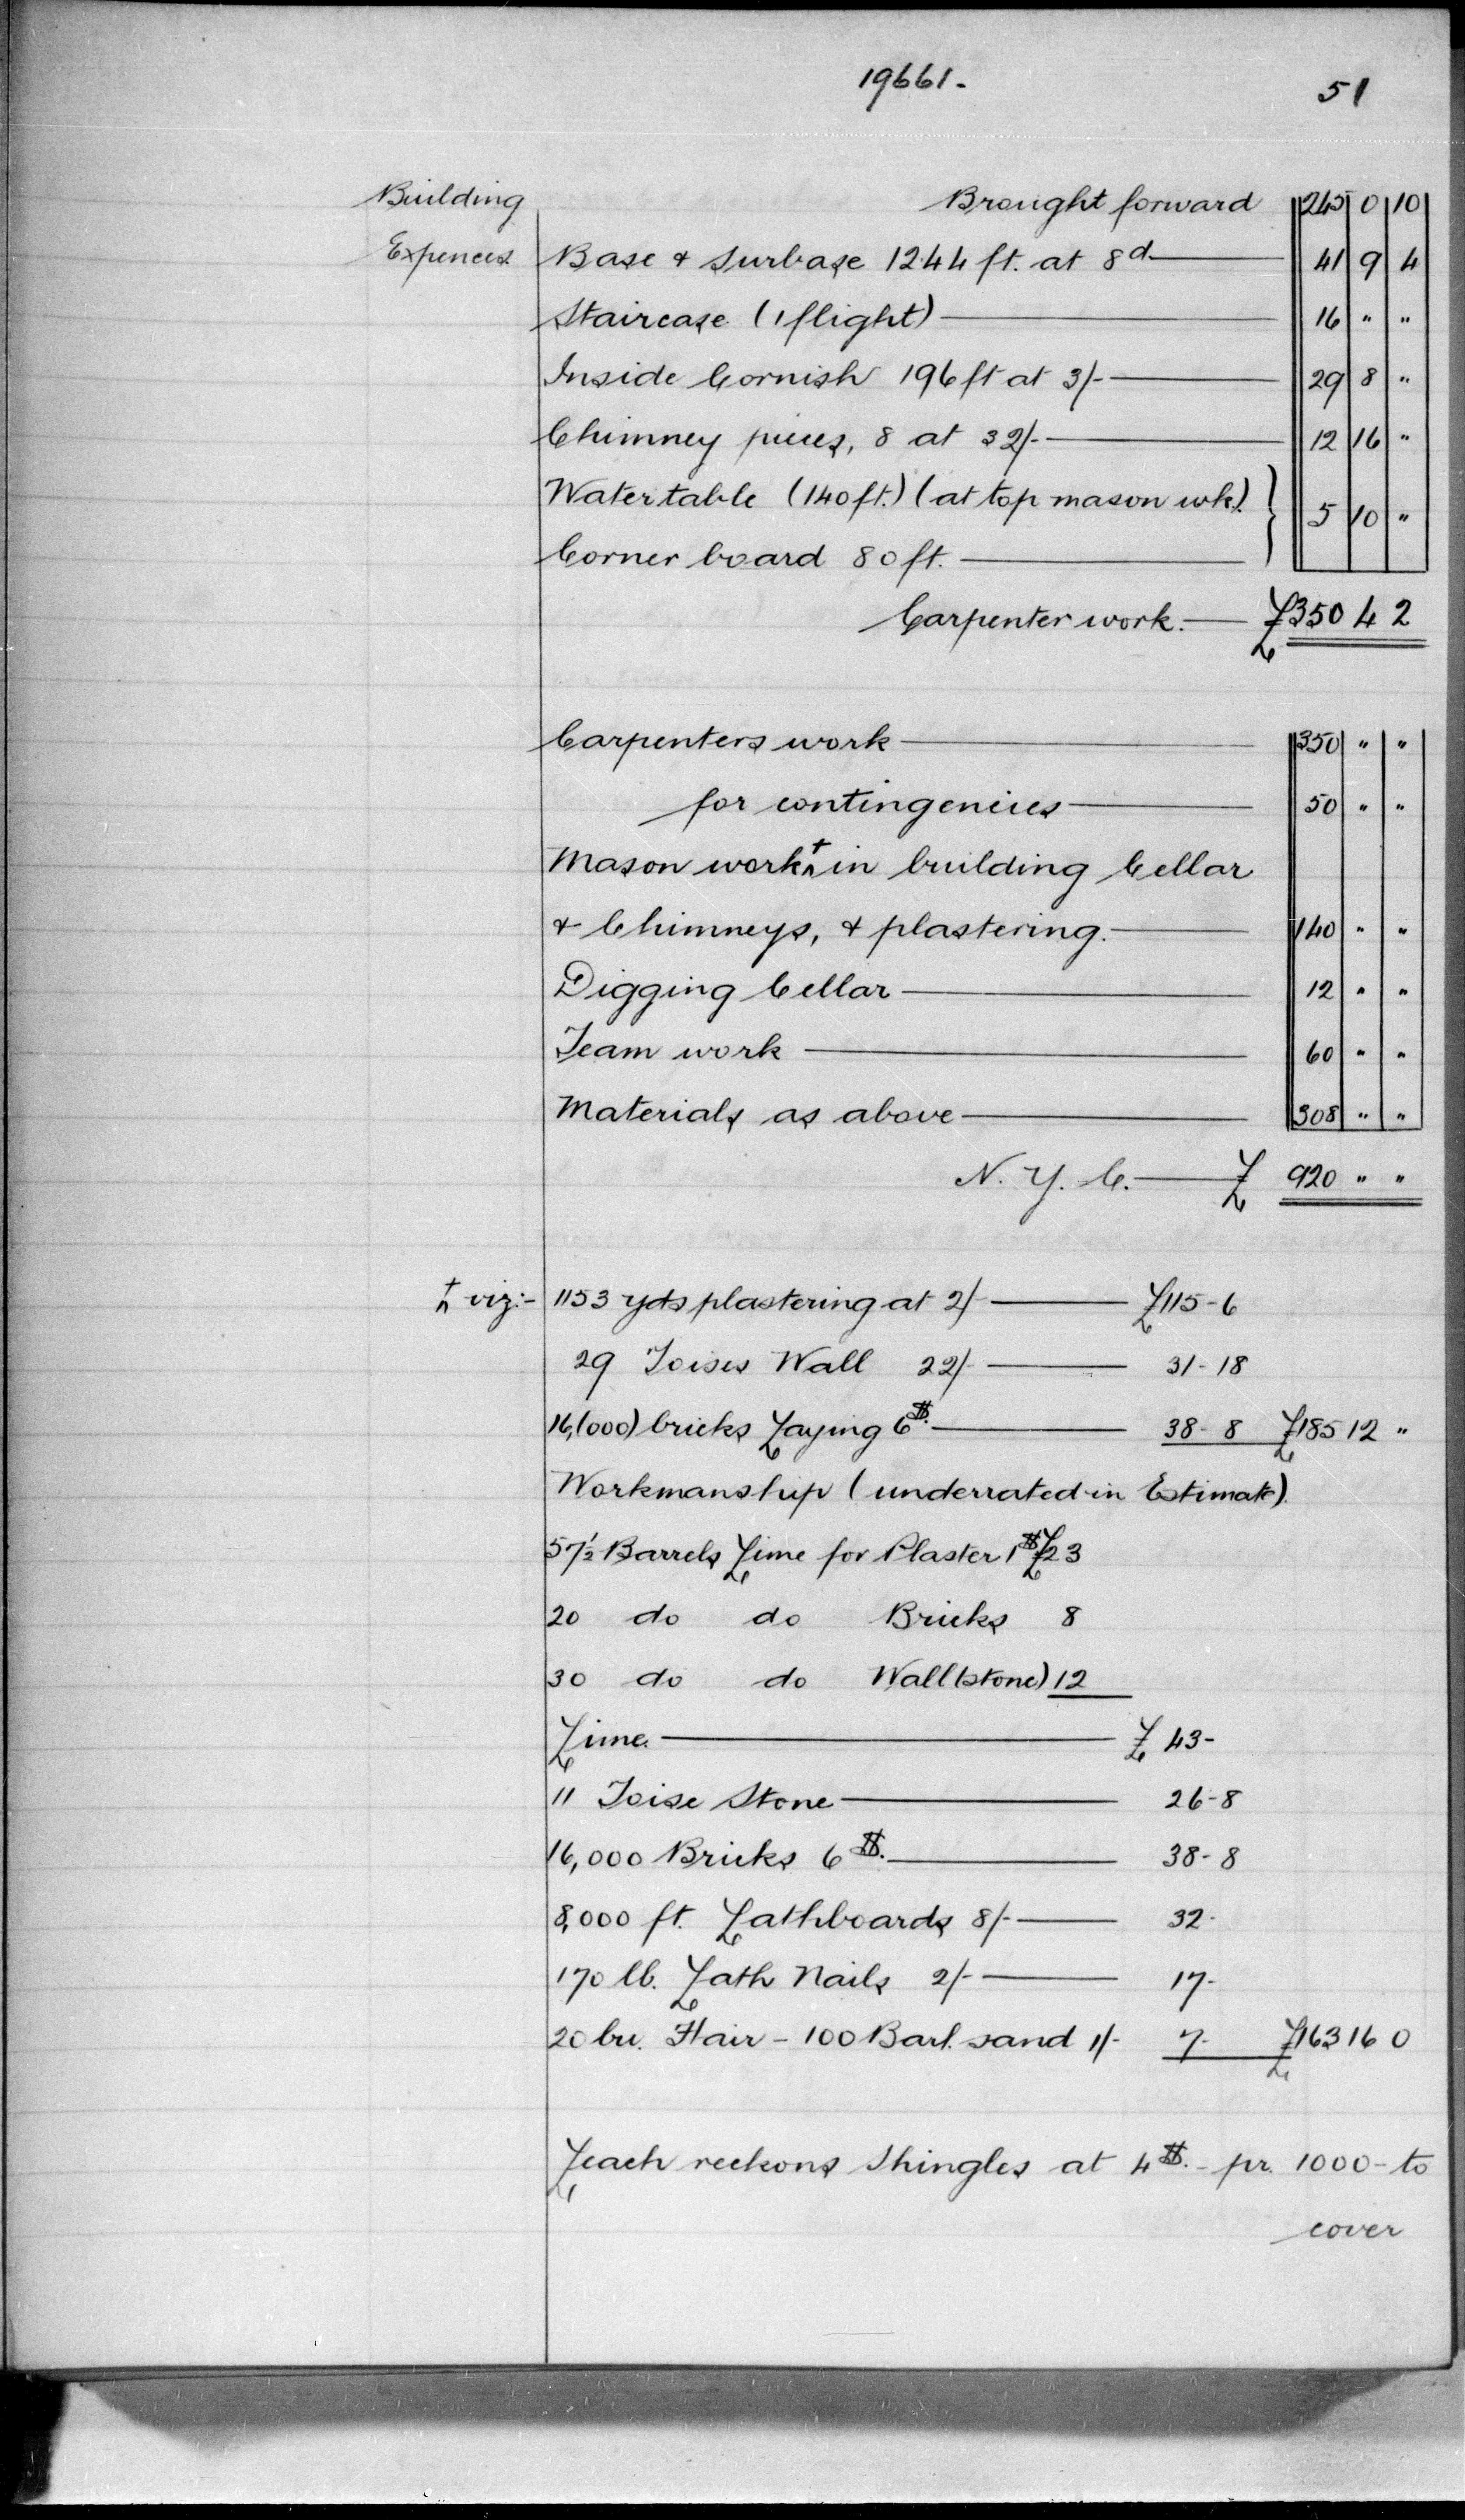 19661.
51
Building Brought forward 245 0 10
Expences. Base & Surbase 1244 ft. at 8d. 41 9 4
Staircase (1 flight) 16 " "
Inside Cornish 196 ft at 3/- 29 8 "
Chimney pieces, 8 at 32/- 12 16 "
Water table (140 ft.) (at top mason wk.) } 5 10 "
Corner board 80 ft.
Carpenter work. £350 4 2
Carpenters work 350 " "
for contingencies 50 " "
Mason work + in building Cellar
& Chimneys, & plastering. 140 " "
Digging Cellar 12 " "
Team work 60 " "
Materials as above 308 " "
N. Y. C. £ 920 " "
+ viz:- 1153 yds plastering at 2/- £115-6
29 Toises Wall 22/- 31-18
16,(000) bricks Laying 6$. 38-8 £185 12 "
Workmanship (underrated in Estimate)
57½ Barrels Lime for Plaster 1$ £23
20 do do Bricks 8
30 do do Wall (stone) 12
Lime. £ 43-
11 Toise Stone 26-8
16,000 Bricks 6$. 38-8
8,000 ft. Lathboards 8/- 32-
170 lb. Lath Nails 2/- 17-
20 bu. Hair - 100 Barl. sand 1/- 7- £163 16 0
Leach reckons Shingles at 4$. - pr. 1000 - to
cover